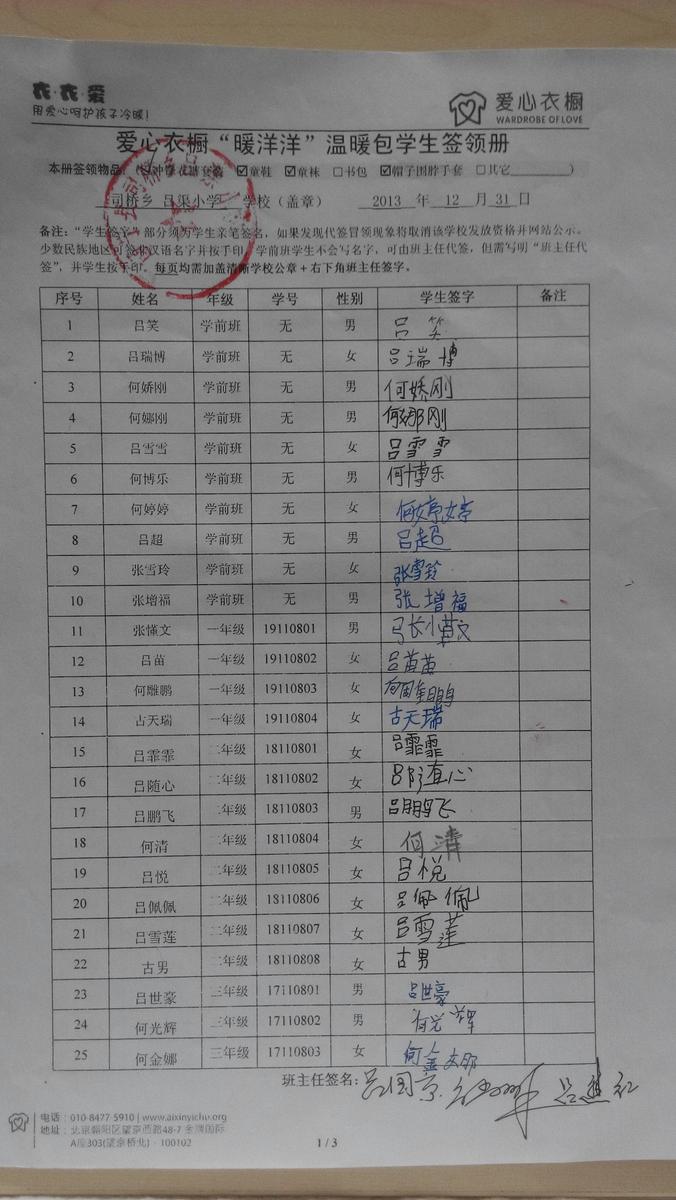 衣·衣·爱
用爱心呵护孩子冷暖!
爱心衣橱
WARDROBE OF LOVE
爱心衣橱“暖洋洋”温暖包学生签领册
本册签领物品: ☑童鞋 ☑童袜 □书包 ☑帽子围脖手套 □其它
司桥乡 吕渠小学 学校(盖章) 2013 年 12 月 31 日
备注:“学生签字”部分须为学生亲笔签名,如果发现代签冒领现象将取消该学校发放资格并网站公示。
少数民族地区可签非汉语名字并按手印。学前班学生不会写名字,可由班主任代签,但需写明“班主任代
签”,并学生按手印。每页均需加盖清晰学校公章+右下角班主任签字。
序号 姓名 年级 学号 性别 学生签字 备注
1 吕笑 学前班 无 男 吕笑
2 吕瑞博 学前班 无 女 吕瑞博
3 何娇刚 学前班 无 男 何娇刚
4 何娜刚 学前班 无 男 何娜刚
5 吕雪雪 学前班 无 女 吕雪雪
6 何博乐 学前班 无 男 何博乐
7 何婷婷 学前班 无 女 何婷婷
8 吕超 学前班 无 男 吕超
9 张雪玲 学前班 无 女 张雪玲
10 张增福 学前班 无 男 张增福
11 张懂文 一年级 19110801 男 张懂文
12 吕苗 一年级 19110802 女 吕苗苗
13 何雕鹏 一年级 19110803 女 何雕鹏
14 古天瑞 一年级 19110804 女 古天瑞
15 吕霏霏 二年级 18110801 女 吕霏霏
16 吕随心 二年级 18110802 女 吕随心
17 吕鹏飞 二年级 18110803 男 吕鹏飞
18 何清 二年级 18110804 女 何清
19 吕悦 二年级 18110805 女 吕悦
20 吕佩佩 二年级 18110806 女 吕佩佩
21 吕雪莲 二年级 18110807 女 吕雪莲
22 古男 二年级 18110808 女 古男
23 吕世豪 三年级 17110801 男 吕世豪
24 何光辉 三年级 17110802 男 何光辉
25 何金娜 三年级 17110803 女 何金娜
班主任签名:
电话:010-8477-5910 | www.aixinyichu.org
地址:北京朝阳区望京西路48-7 金隅国际
A座303(望京桥北)·100102
1 / 3